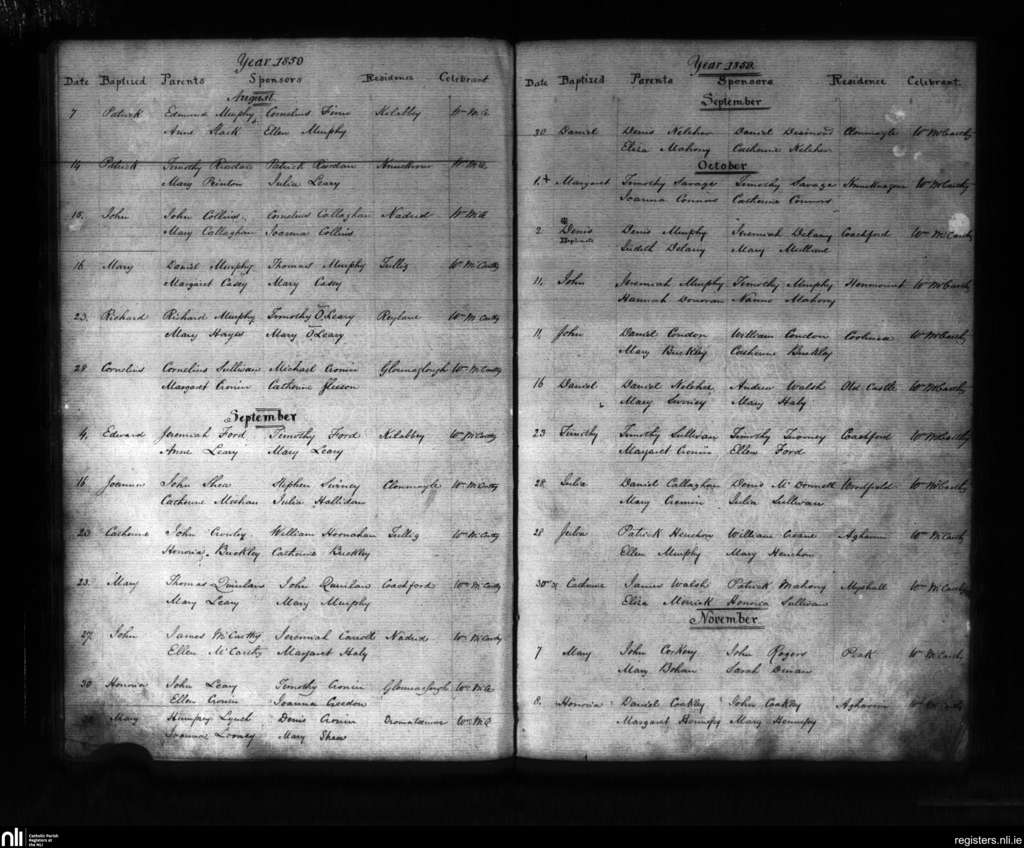 Year 1850
Date Baptized Parents Sponsors Residence Celebrant
August
7 Patrick Edmund Murphy Cornelius Finn Kilabby Wm McC
Anne Slack Ellen Murphy
14 Patrick Timothy Riordan Patrick Riordan
Mary Julia Leary
15. John John Collins Cornelius Callaghan Nadrid Wm McC
Mary Callaghan Joanna Collins
16 Mary Daniel Murphy Thomas Murphy Tullig Wm McCarthy
Margaret Casey Mary Casey
23. Richard Richard Murphy Timothy O'Leary Roylane Wm McCarthy
Mary Hayes Mary O'Leary
28 Cornelius Cornelius Sullivan Michael Cronin Wm McCarthy
Margaret Cronin Catherine Gleeson
September
4. Edward Jeremiah Ford Timothy Ford Kilabbey Wm McCarthy
Anne Leary Mary Leary
16 Joanna John Shea Stephen Swiney Clonmoyle Wm McCarthy
Catherine Meehan Julia Hallidan
23 Catherine John Crowley William Hornahan Tullig Wm McCarthy
Honoria Buckley Catherine Buckley
23. Mary Thomas Quinlan John Quinlan Coachford Wm McCarthy
Mary Leary Mary Murphy
27. John James McCarthy Jeremiah Carroll Nadrid Wm McCarthy
Ellen McCarthy Margaret Haly
30 Honoria John Leary Timothy Cronin Wm McC
Ellen Cronin Joanna Creedon
30 Mary Humprey Lynch Denis Cronin Wm McC
Joanna Looney Mary Shea
Year 1850.
Date Baptized Parents Sponsors Residence Celebrant.
September
30 Daniel Denis Kelcher Daniel Desmond Clonmoyle Wm McCarthy
Eliza Mahony Catherine Kelcher
October
1. Margaret Timothy Savage Timothy Savage Wm McCarthy
Joanna Connors Catherine Connors
2 Denis Denis Murphy Jeremiah Delany Coachford Wm McCarthy
Judith Delany Mary
11. John Jeremiah Murphy Timothy Murphy Wm McCarthy
Hannah Donovan Nanno Mahony
11. John Daniel Condon William Condon Wm McCarthy
Mary Buckley Catherine Buckley
16 Daniel Daniel Kelcher Andrew Walsh Old Castle Wm McCarthy
Mary Swiney Mary Haly
23 Timothy Timothy Sullivan Timothy Twomey Coachford Wm McCarthy
Margaret Cronin Ellen Ford
28. Julia Daniel Callaghan Denis McDonnell Woodfield Wm McCarthy
Mary Cremin Julia Sullivan
28 Julia Patrick Henchon William Crane Aghavrin Wm McCarthy
Ellen Murphy Mary Henchon
30 Catherine James Walsh Patrick Mahony Myshall Wm McCarthy
Eliza Merrick Honoria Sullivan
November
7 Mary John Corkery John Rogers Peak Wm McCarthy
Mary Bohan Sarah Dinan
8. Honoria Daniel Coakley John Coakley Aghavrin Wm McCarthy
Margaret Hennessy Mary Hennessy
nli
Catholic Parish
Registers at
the NLI
registers.nli.ie